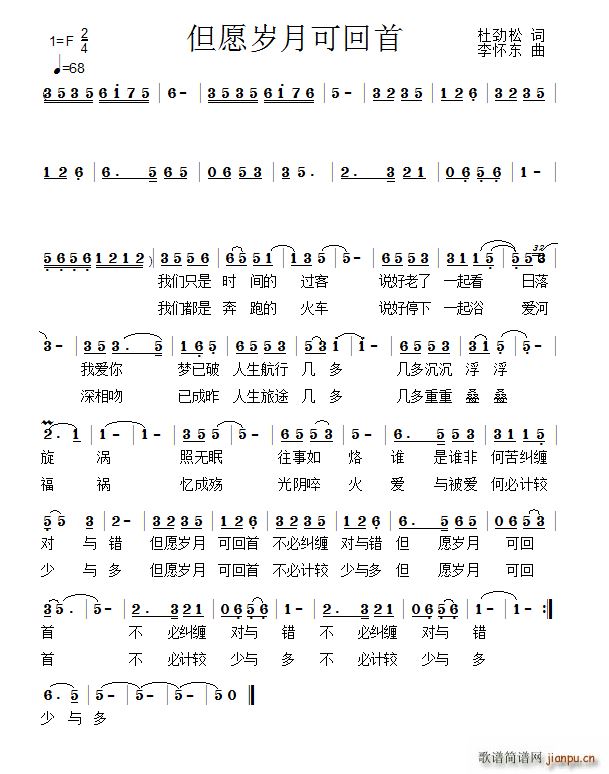 但愿岁月可回首
1=F 2/4
杜劲松 词
李怀东 曲
♩=68
3 5 3 5 6 i 7 5 | 6 - | 3 5 3 5 6 i 7 6 | 5 - | 3 2 3 5 | 1 2 6 | 3 2 3 5 |
1 2 6 | 6. 5 | 5 6 5 | 0 6 5 3 | 3 5. | 2. 3 | 3 2 1 | 0 6 5 6 | 1 - |
5 6 5 6 1 2 1 2 ) | 3 5 5 6 | 6 5 5 1 | 1 3 5 | 5 - | 5 3 2 3 | 3 1 1 5 | 5 5 3
我们只是 时 间的 过客 说好老了 一起看 日落
我们都是 奔 跑的 火车 说好停下 一起浴 爱河
3 - | 3 5 3. 5 | 1 6 5 | 6 1 6 5 | 5 3 i | i - | 6 5 3 5 | 5 2 5 | 5 - |
我爱你 梦已破 人生航行 几 多 几多沉沉 浮 浮
深相吻 已成昨 人生旅途 几 多 几多重重 叠 叠
2. 1 | 1 - | 1 - | 3 5 5 | 6 5 5 3 | 6. 5 | 5 3 2 3 | 3 1 1 5 |
旋 涡 照无眠 往事如 烙 谁 是谁非 何苦纠缠
福 祸 忆成殇 光阴啐 火 爱 与被爱 何必计较
5 5 3 | 2 - | 3 2 3 5 | 1 2 6 | 3 2 3 5 | 1 2 6 | 6. 5 | 5 6 5 | 0 6 5 3 |
对 与 错 但愿岁月 可回首 不必纠缠 对与错 但 愿岁月 可回
少 与 多 但愿岁月 可回首 不必计较 少与多 但 愿岁月 可回
3 5. | 5 - | 2. 3 2 1 | 0 6 5 6 | 1 - | 1 - | 2. 3 2 1 | 0 6 5 6 | 1 - :||
首 不 必纠缠 对与 错 不 必纠缠 对与 错
首 不 必计较 少与 多 不 必计较 少与 多
6. 5 | 5 - | 5 - | 5 0 ||
少 与 多
歌谱简谱网
jianpu.cn